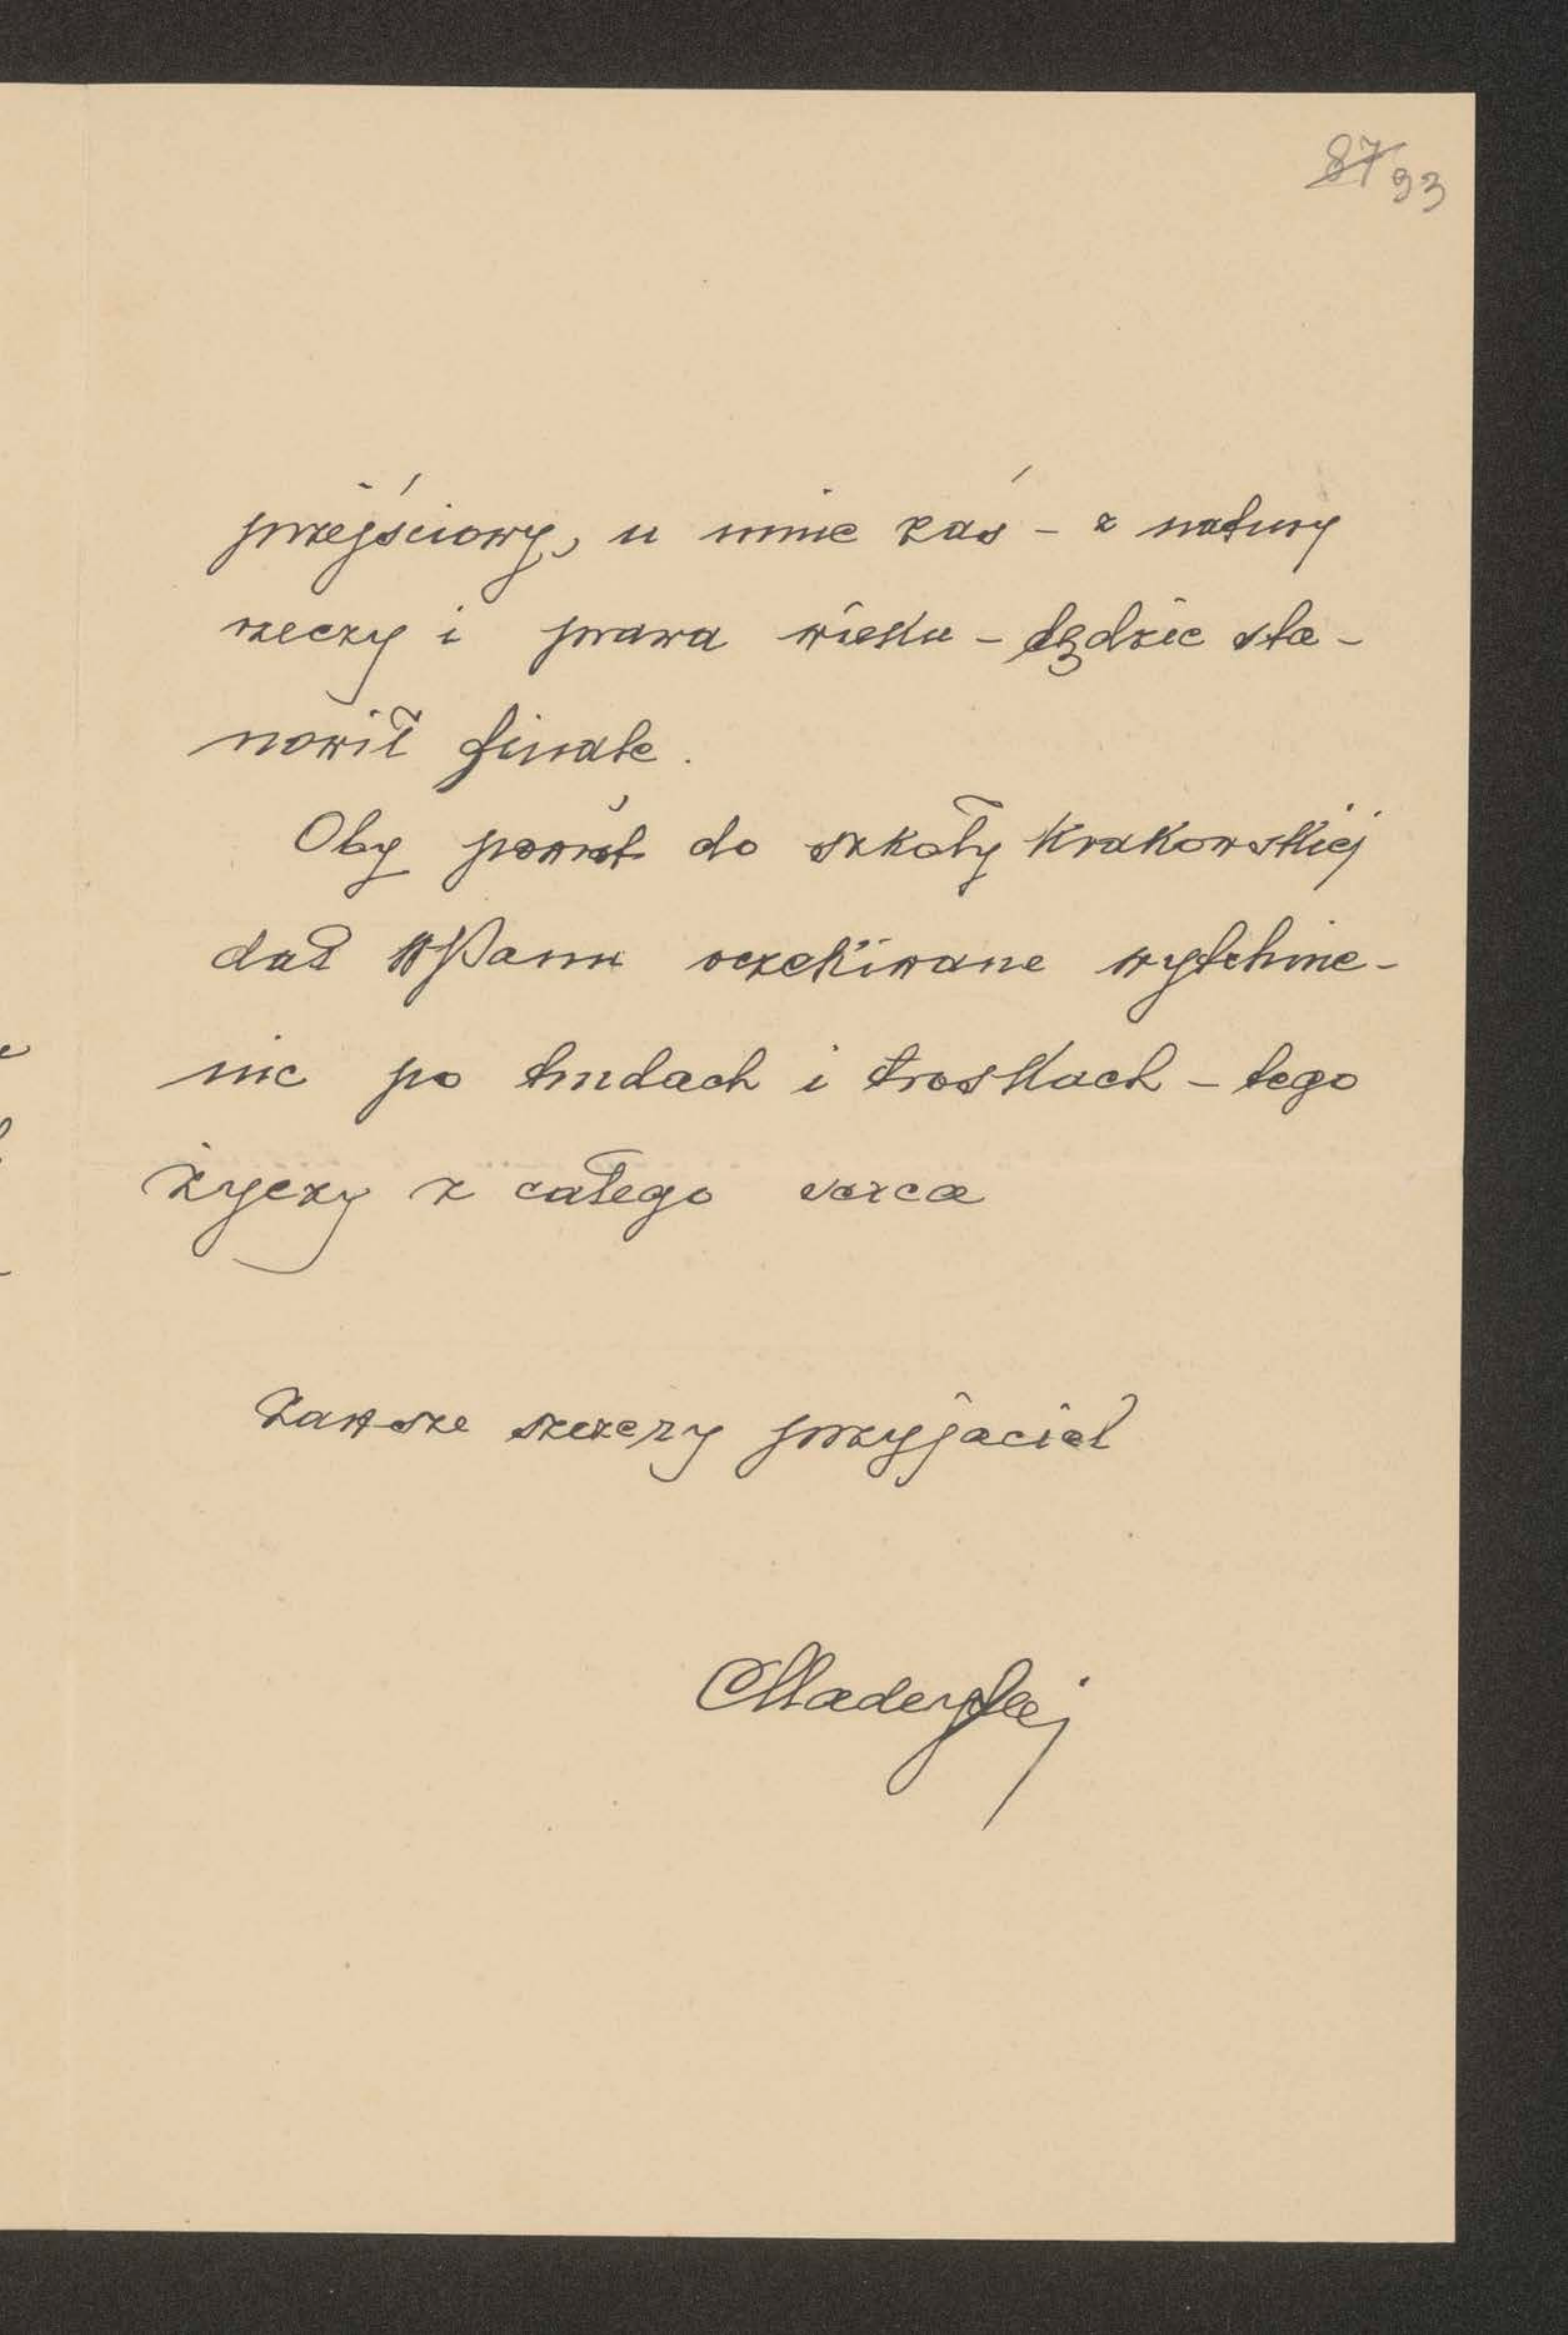 87 93
przejściowy, u mnie zaś - z natury
rzeczy i prawa wieku - będzie sta-
nowił finale.
Oby powrót do szkoły Krakowskiej
dał WPanu oczekiwane wytchnie-
nie po trudach i troskach - tego
życzy z całego serca
Zawsze szczery przyjaciel
Madeyski